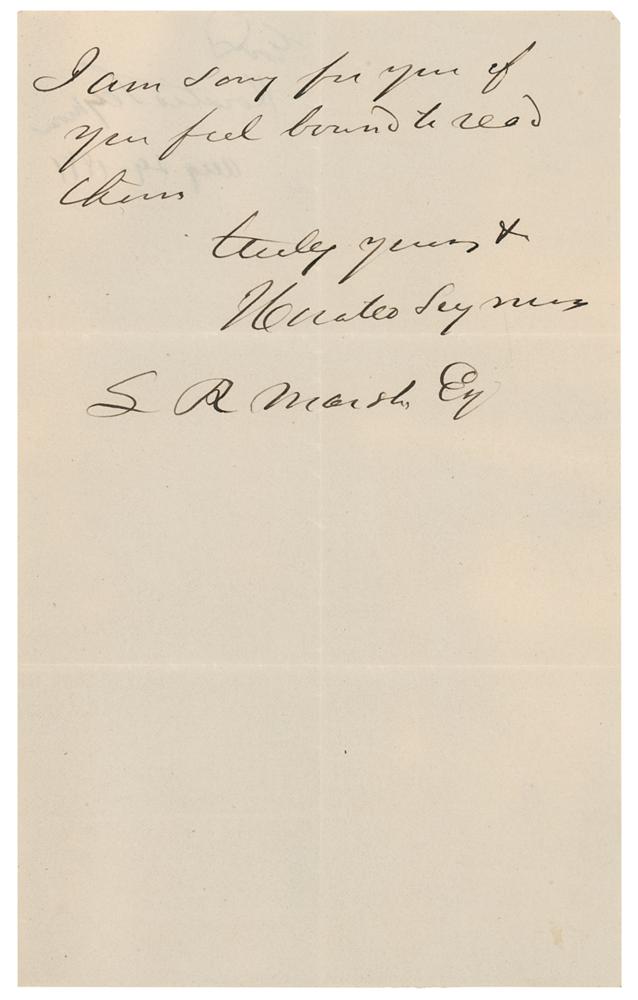 I am sorry for you if
you feel bound to read
them
truly yours &
Horatio Seymour
S R Marsh Esq